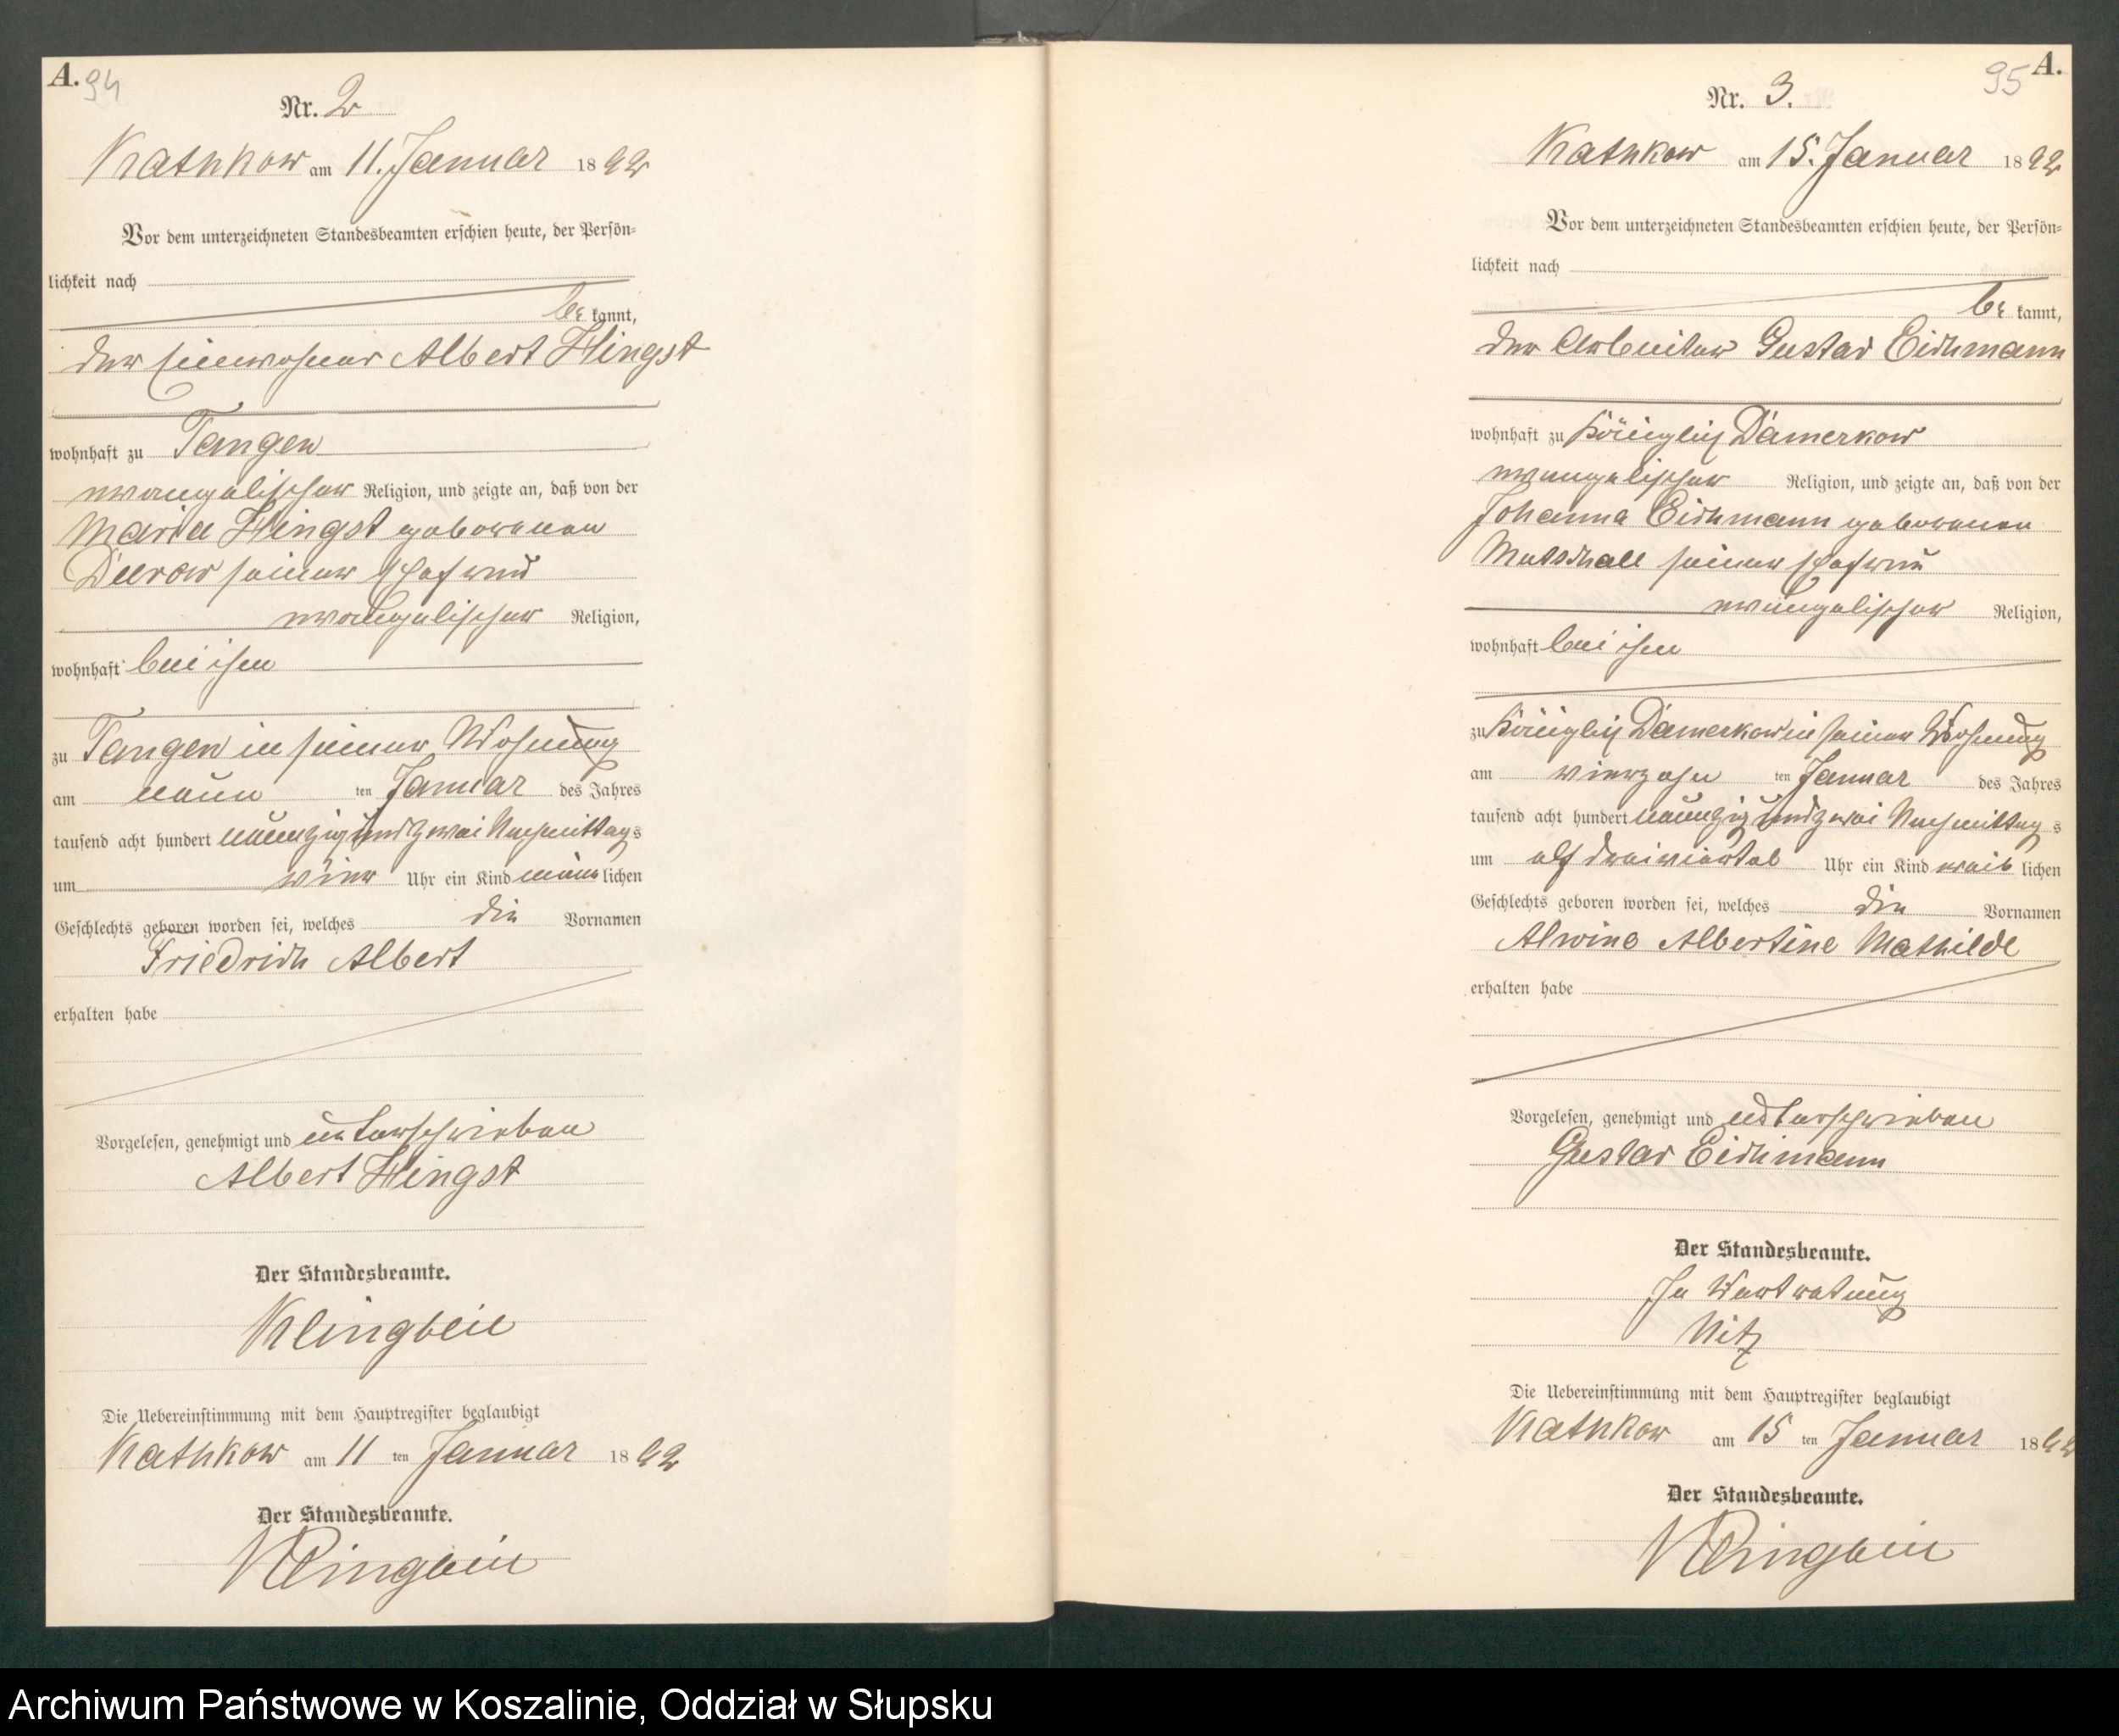 A. 94
Nr. 2
Kathkow am 11. Januar 1892
Vor dem unterzeichneten Standesbeamten erschien heute, der Persön-
lichkeit nach
be kannt,
der Einwohner Albert Hingst
wohnhaft zu Tangen
evangelischer Religion, und zeigte an, daß von der
Maria Hingst geborenen
Durow seiner Ehefrau
evangelischer Religion,
wohnhaft bei ihm
zu Tangen in seiner Wohnung
am neun ten Januar des Jahres
tausend acht hundert neunzig und zwei Nachmittags
um vier Uhr ein Kind männlichen
Geschlechts geboren worden sei, welches die Vornamen
Friedrich Albert
erhalten habe
Vorgelesen, genehmigt und unterschrieben
Albert Hingst
Der Standesbeamte.
Klingbeil
Die Uebereinstimmung mit dem Hauptregister beglaubigt
Kathkow am 11 ten Januar 1892
Der Standesbeamte.
Klingbeil
95 A.
Nr. 3.
Kathkow am 15. Januar 1892
Vor dem unterzeichneten Standesbeamten erschien heute, der Persön-
lichkeit nach
be kannt,
der Arbeiter Gustav Eichmann
wohnhaft zu Königlich Damerkow
evangelischer Religion, und zeigte an, daß von der
Johanna Eichmann geborenen
seiner Ehefrau
evangelischer Religion,
wohnhaft bei ihm
zu Königlich Damerkow in seiner Wohnung
am vierzehn ten Januar des Jahres
tausend acht hundert neunzig und zwei Nachmittags
um elf dreiviertel Uhr ein Kind weib lichen
Geschlechts geboren worden sei, welches die Vornamen
Alwine Albertine Mathilde
erhalten habe
Vorgelesen, genehmigt und unterschrieben
Gustav Eichmann
Der Standesbeamte.
In Vertretung
Nitz
Die Uebereinstimmung mit dem Hauptregister beglaubigt
Kathkow am 15 ten Januar 1892
Der Standesbeamte.
Klingbeil
Archiwum Państwowe w Koszalinie, Oddział w Słupsku